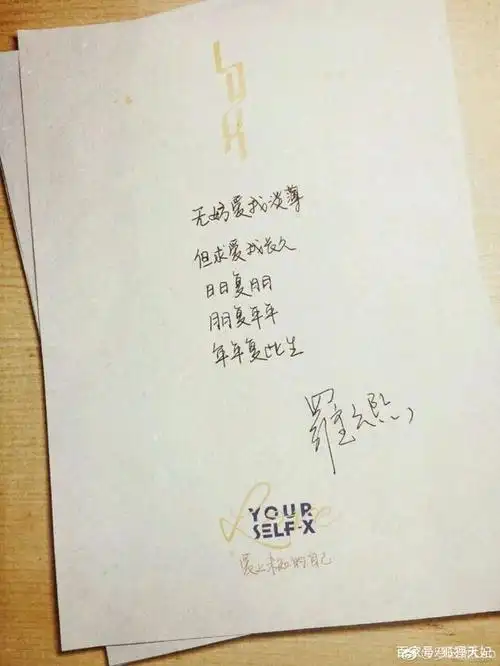 无妨爱我淡薄
但求爱我长久
日日复月月
月月复年年
年年复此生
羅云熙
Love
YOUR
SELF-X
爱上未知的自己